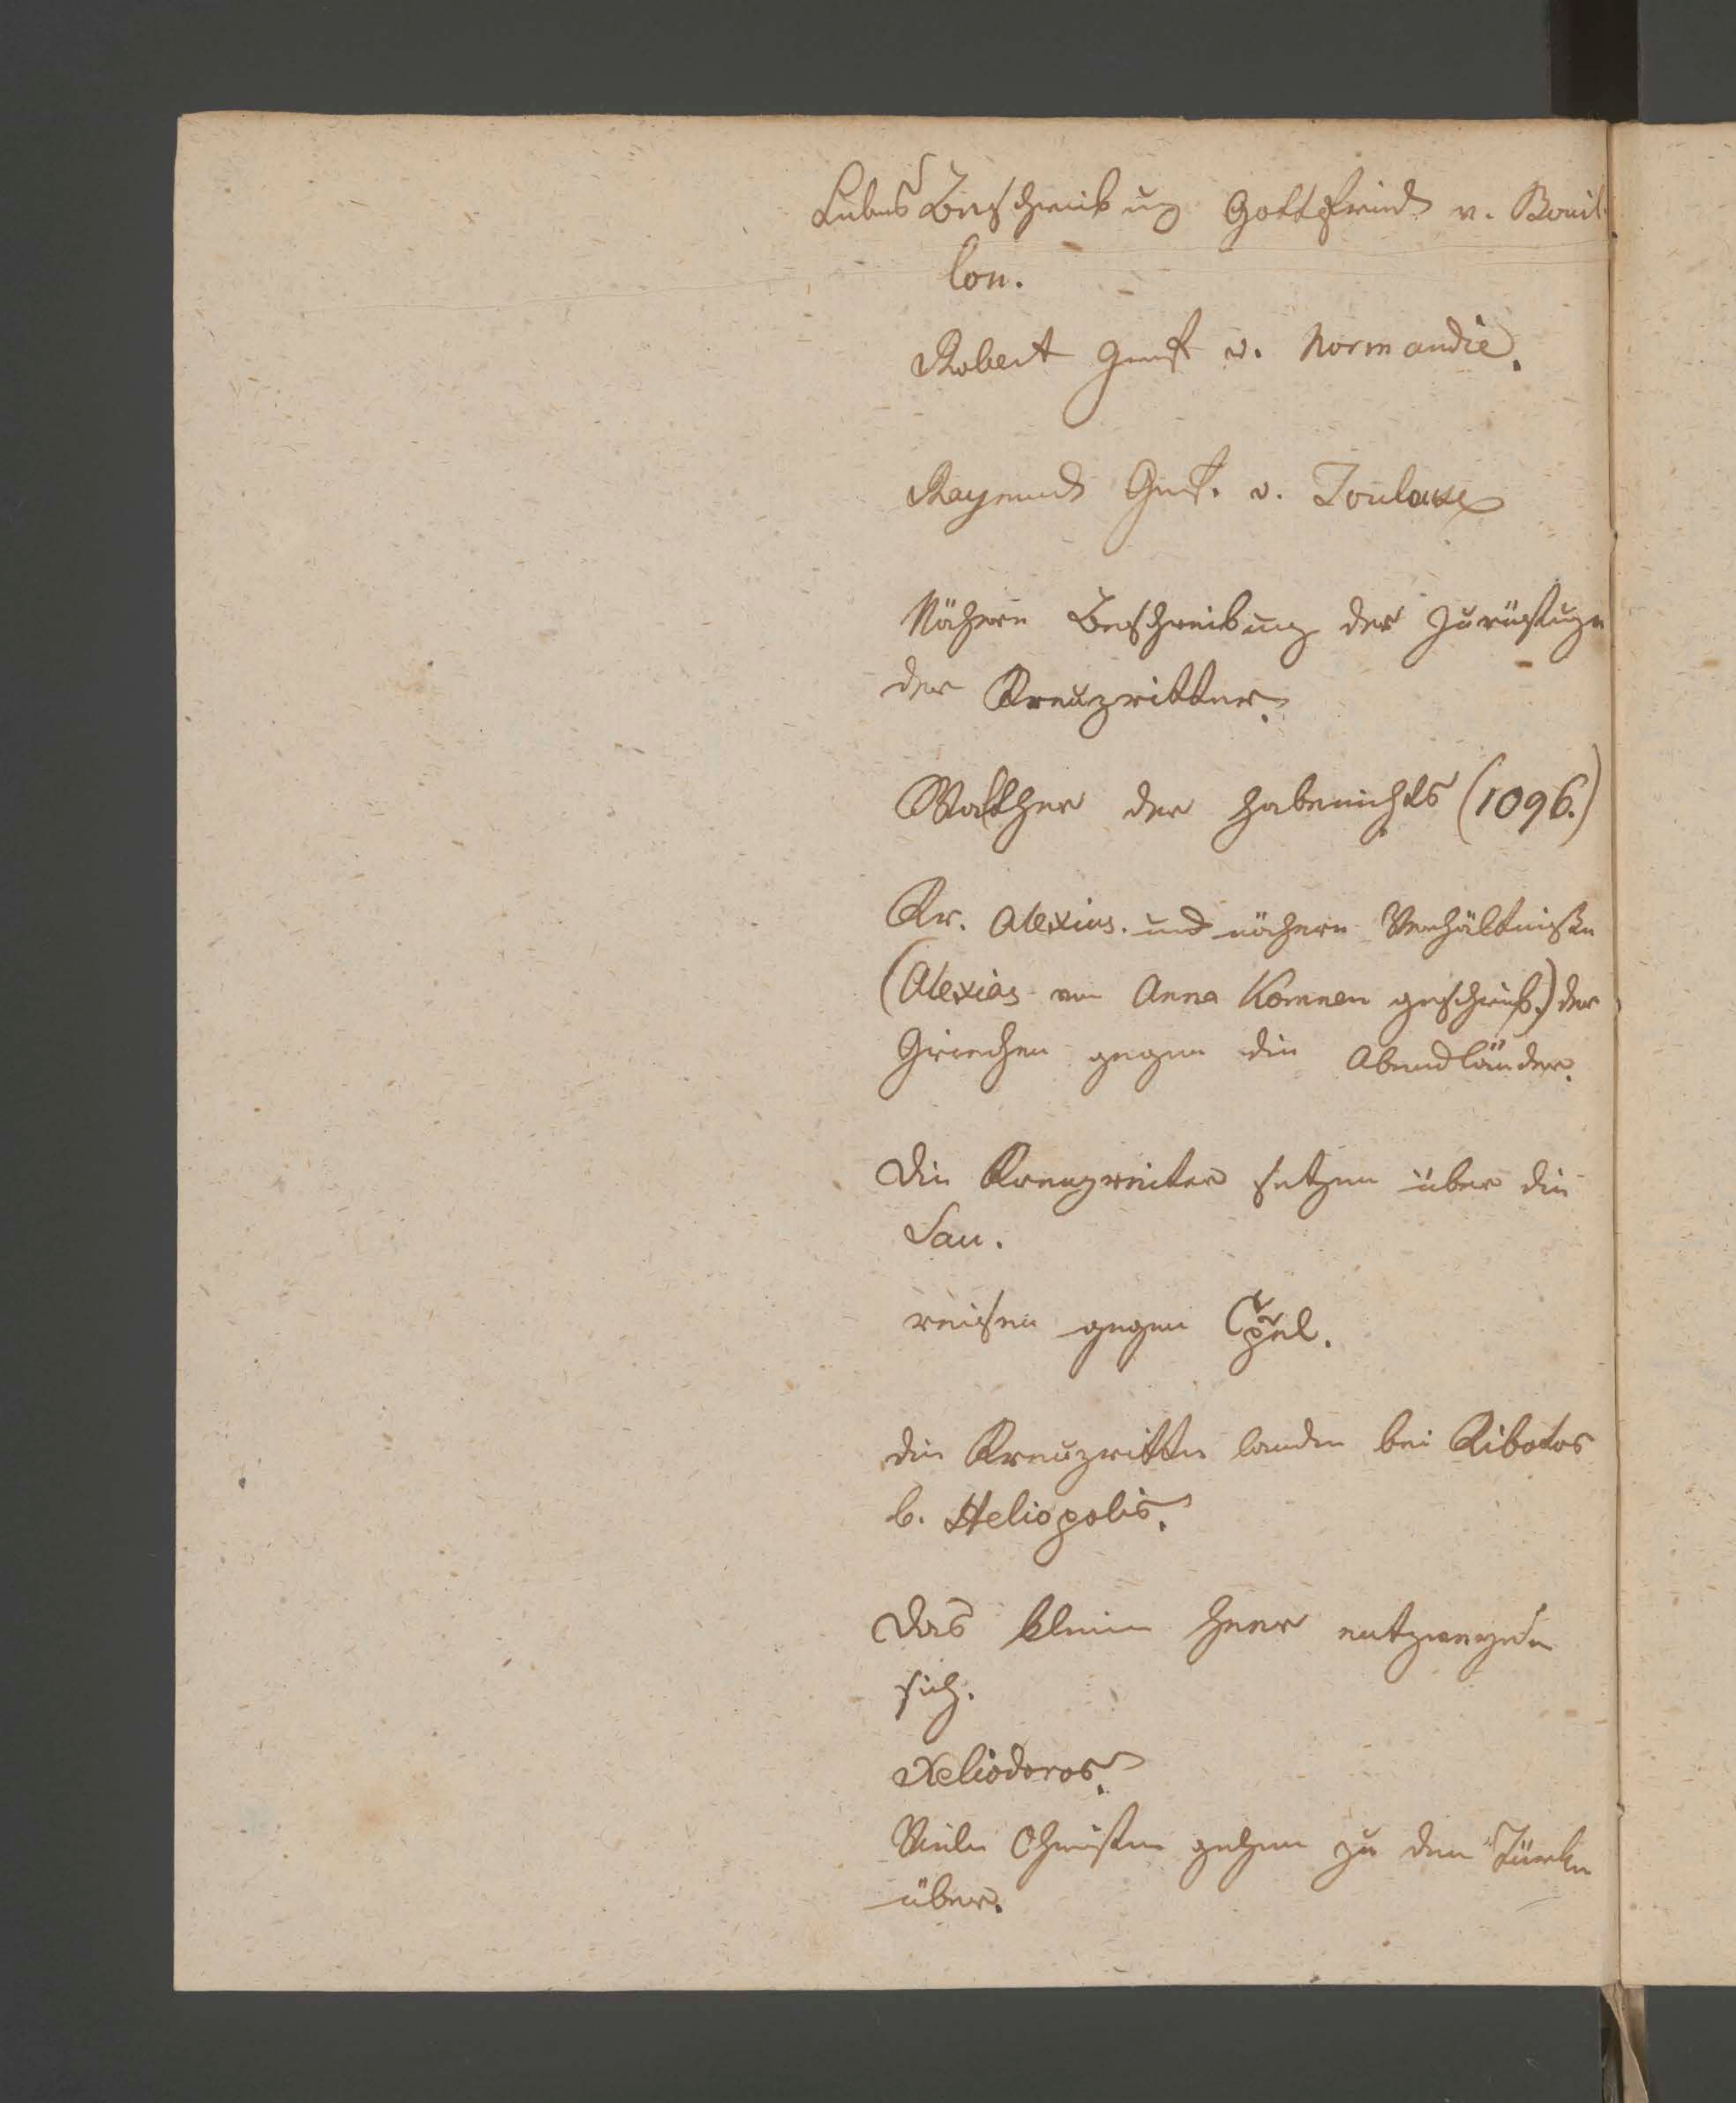 Lebens Beschreibung Gottfrieds v. Bouil
lon.
Robert Graf v. Normandie.
Raymund Graf. v. Toulouse
Nähere Beschreibung der Zurüstugn
der Kreuzritter.
Walther der Habenichts (1096.)
Kr. Alexius. und nähere Verhältniße
(Alexias von Anna Komnen geschrieb.) der
Griechen gegen die Abendländer.
Die Kreuzreiter setzen über die
Sau.
reisen gegen Cpel.
die Kreuzritter landen bei Kibotos
b. Heliopolis.
Das kleine Heer entzweyen
sich.
Xeliodoros.
Viele Christen gehen zu den Türken
über.